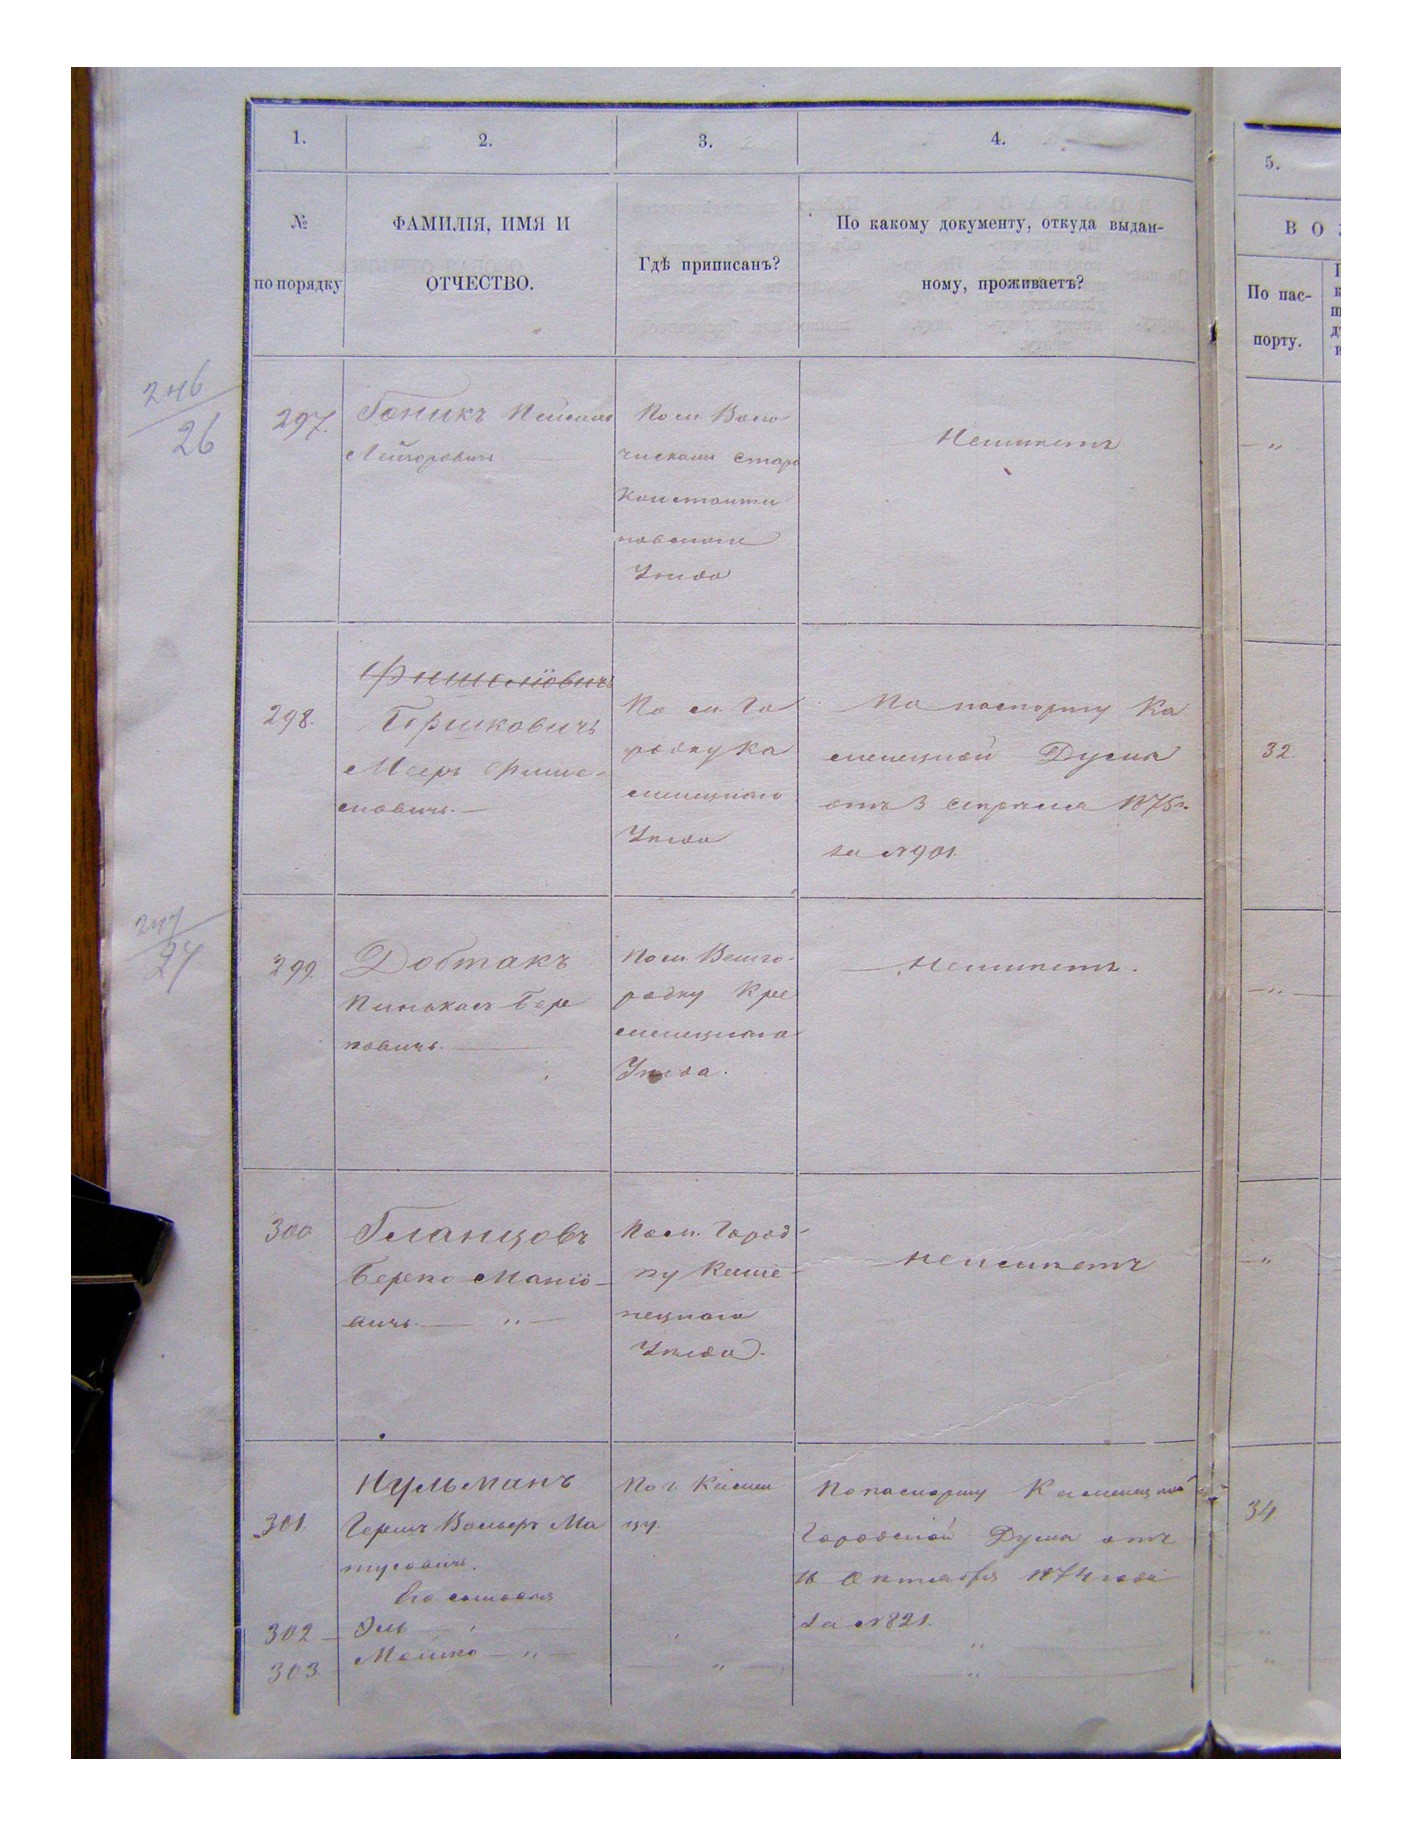 1.
2.
3.
4.
5.
№
по порядку
ФАМИЛІЯ, ИМЯ И
ОТЧЕСТВО.
Гдѣ приписанъ?
По какому документу, откуда выдан-
ному, проживаетъ?
В О
По пас-
порту.
246
26
297.
Гоникъ
Лейзоровичъ
По м. Воло
чискамъ Старо
Константи
новскаго
Уѣзда
Неимѣетъ
"
298.
Фишелiовичъ
Гершковичъ
Мееръ Фише-
ловичъ.
По м. Го
родку Ка
менецкаго
Уѣзда
По паспорту Ка
менецкой Думы
отъ 3 Апрѣля 1875 г.
за №901.
32.
247
27
299.
Добтакъ
Пинхасъ Бер
ковичъ.
По м. Вышго-
родку Кре
менецкаго
Уѣзда.
Неимѣетъ.
"
300
Гланцовъ
Берко Манiо-
вичъ. "
По м. Город-
ку Каме
нецкаго
Уѣзда.
Неимѣетъ
"
301.
Нульманъ
Гершъ Вольфъ Ма
тусовичъ.
Его сыновья
По г. Камен
цу.
По паспорту Каменецкой
Городской Думы отъ
16 Октября 1874 года
за №821.
34
302
Эль "
"
"
"
303.
Мошко "
"
"
"